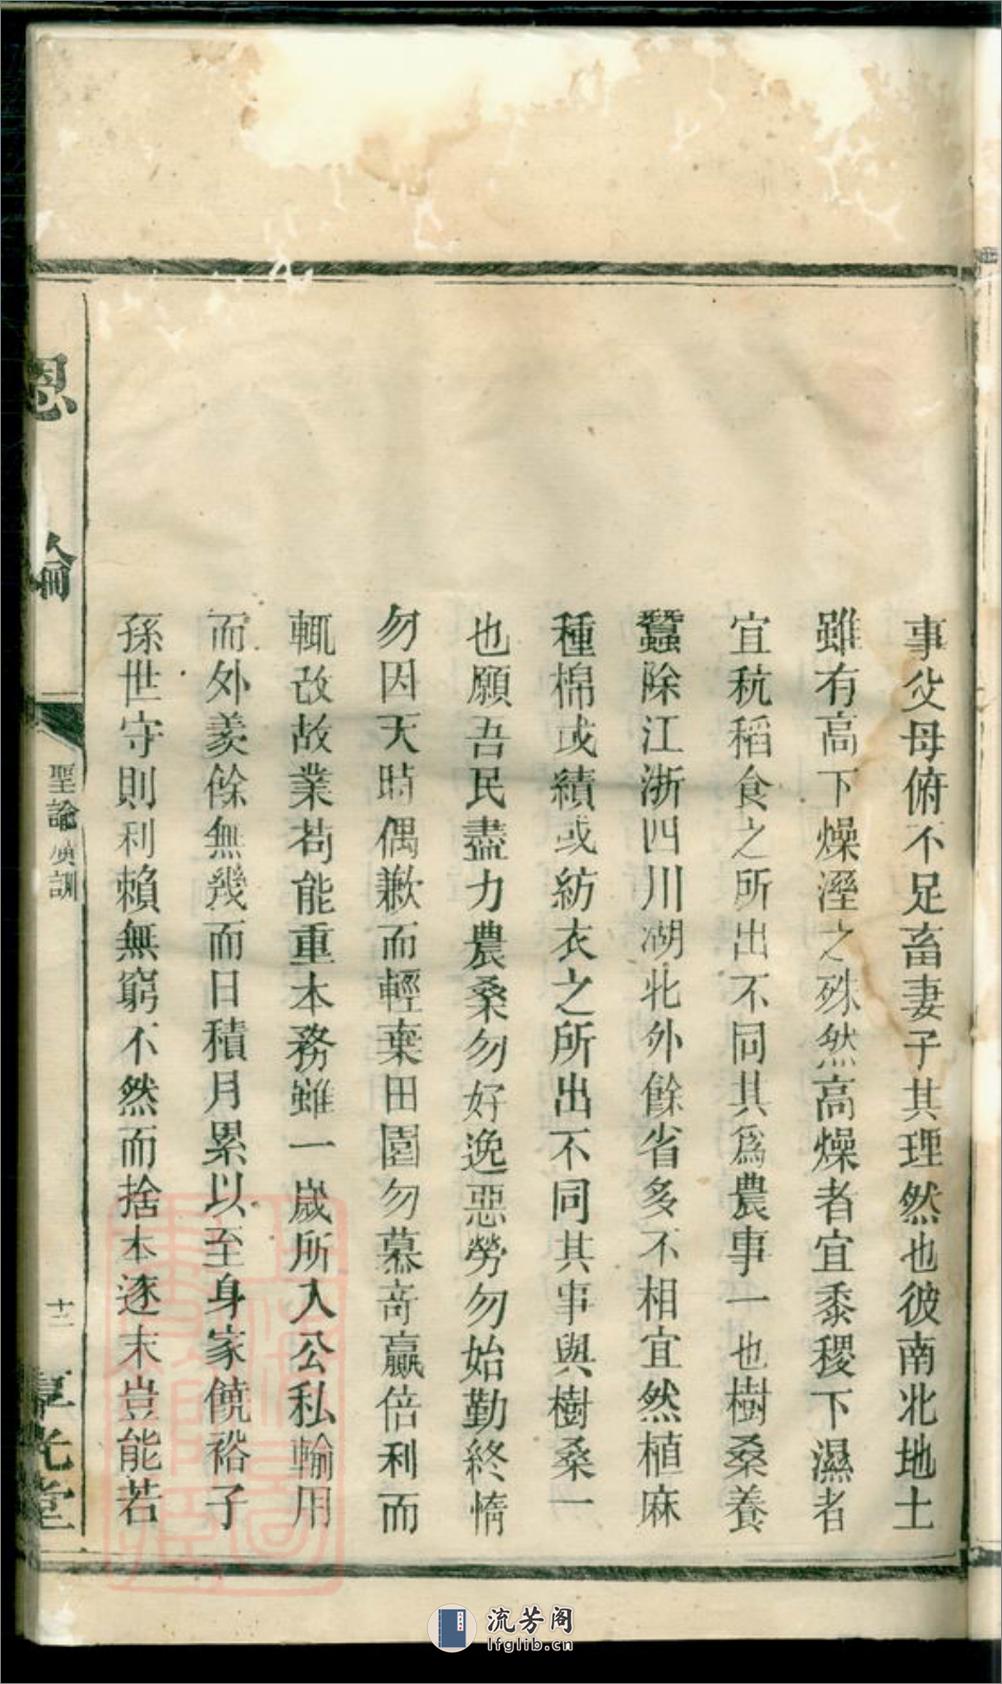 事父母俯不足畜妻子其理然也彼南北地土
雖有高下燥溼之殊然高燥者宜黍稷下濕者
宜秔稻食之所出不同其爲農事一也樹桑養
蠶除江浙四川湖北外餘省多不相宜然植麻
種棉或績或紡衣之所出不同其事與樹桑一
也願吾民盡力農桑勿好逸惡勞勿始勤終惰
勿因天時偶歉而輕棄田園勿慕奇贏倍利而
輒改故業苟能重本務雖一歲所入公私輸用
而外羨餘無幾而日積月累以至身家饒裕子
孫世守則利賴無窮不然而捨本逐末豈能若
恩綸
聖諭廣訓
十二
光堂
流芳阁
lfglib.cn